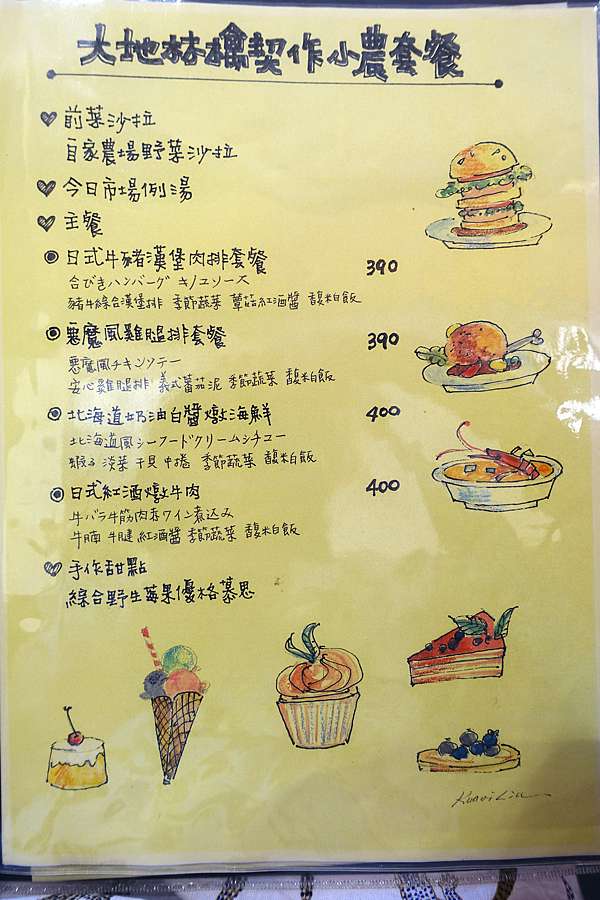 大地林檎契作小農套餐
前菜沙拉
自家農場野菜沙拉
今日市場例湯
主餐
日式牛豬漢堡肉排套餐 390
合びきハンバーグ キノコソース
豬牛綜合漢堡排 季節蔬菜 蕈菇紅酒醬 馥米白飯
惡魔風雞腿排套餐 390
悪魔風チキンソテー
安心雞腿排 義式蕃茄泥 季節蔬菜 馥米白飯
北海道奶油白醬燉海鮮 400
北海道風シーフードクリームシチュー
蝦子 淡菜 干貝 中捲 季節蔬菜 馥米白飯
日式紅酒燉牛肉 400
牛バラ牛筋肉赤ワイン煮込み
牛腩 牛腱 紅酒醬 季節蔬菜 馥米白飯
手作甜點
綜合野生莓果優格慕思